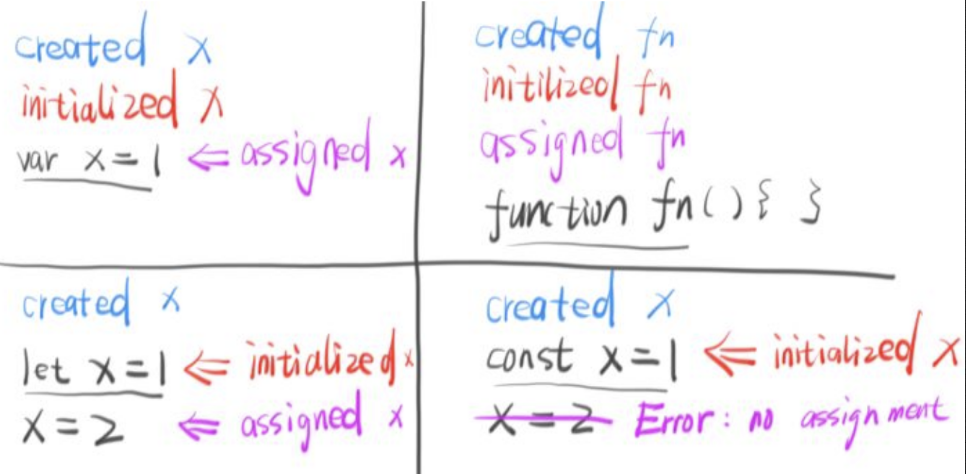 created x
initialized x
var x = 1 ⇐ assigned x
created fn
initilized fn
assigned fn
function fn() { }
created x
let x = 1 ⇐ initialized x
x = 2 ⇐ assigned x
created x
const x = 1 ⇐ initialized x
x = 2 Error: no assignment